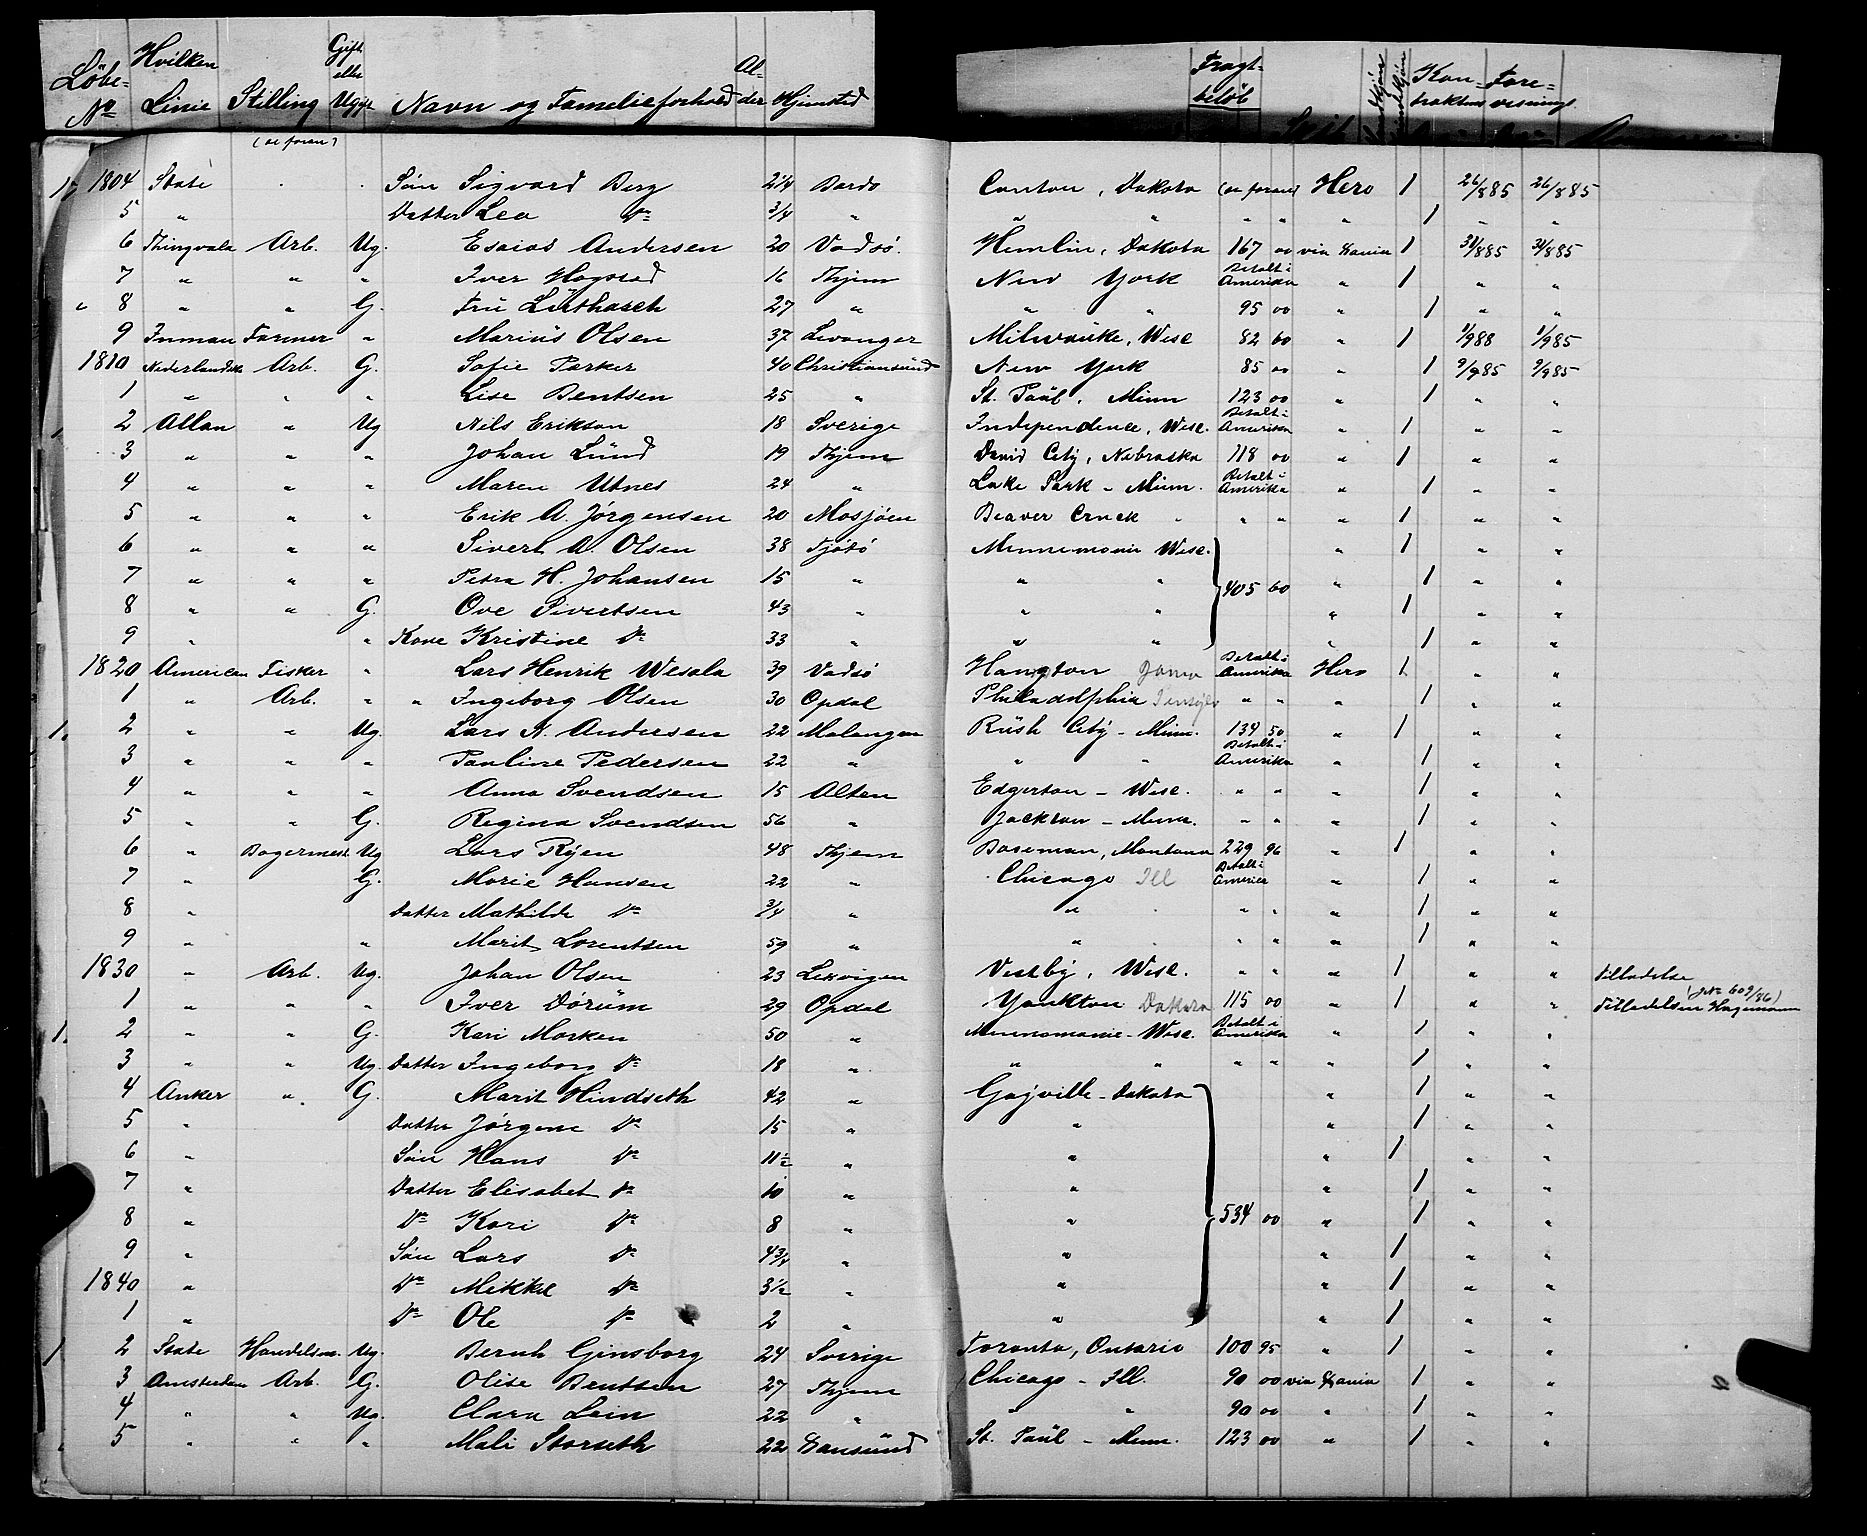 Löbe- No Hvilken Linie Stilling Gift eller Ugift Navn og Familieforhold Alder Hjemsted Fragtbeløb Mandkjøn Kvindekjøn Kontraktens Forevisnings
(se foran)
1804 State Søn Sigvard Berg 2 1/4 Bardo Canton, Dakota (se foran) Hero 1 26/885 26/885
5 " Datter Lea Do 3/4 " " " " " " 1 " "
6 Thingvala Arb. Ug. Esaias Andersen 20 Vadsö. Hemlin, Dakota 167 00 via Hania 1 31/885 31/885
7 " " " Iver Hogstad 16 Thjem New York Betalt i Amerika " 1 " "
8 " " G. Fru Lüthasch 27 " " " 95 00 " 1 " "
9 Inman Farmer " Marius Olsen 37 Levanger Milwauke, Wisc 82 60 " 1 1/988 1/985
1810 Nederlandsk Arb. G. Sofie Parker 40 Christiansund New York 85 00 " 1 9/985 9/985
1 " " " Lise Bentsen 25 " St. Paul, Minn 123 00 " 1 " "
2 Allan " Ug Nils Erikson 18 Sverige Independence, Wisc. Betalt i Amerika " 1 " "
3 " " " Johan Lund 19 Thjem David City, Nebraska 118 00 " 1 " "
4 " " " Maren Utnes 24 " Lake Park - Minn. Betalt i Amerika " 1 " "
5 " " " Erik A. Jörgensen 20 Mosjöen Beaver Creek " " " " 1 " "
6 " " " Sivert A. Olsen 38 Tjötö Mennemonie Wisc. " 1 " "
7 " " " Petra H. Johansen 15 " " " 405 60 " 1 " "
8 " " G. Ove Sivertsen 43 " " " " 1 " "
9 " " Kone Kristine Do 33 " " " " 1 " "
1820 American Fisker " Lars Henrik Wesala 39 Vadsö Hangton Betalt i Amerika Hero 1 " "
1 " Arb. " " Ingeborg Olsen 30 Opdal Philadelphia " " " 1 " "
2 " " Ug. Lars N. Andersen 22 Malangen Rush City - Minn. 134 50 " 1 " "
3 " " " Pauline Pedersen 22 " " " Betalt i Amerika " 1 " "
4 " " " Anna Svendsen 15 Alten Edgerton - Wisc. " " " 1 " "
5 " " G. Regina Svendsen 56 " Jackson - Minn. " " " 1 " "
6 " Bagermest. Ug Lars Ryen 48 Thjem Boseman, Montana 229 96 " 1 " "
7 " G. Marie Hansen 22 " Chicago Ill Betalt i Amerika " 1 " "
8 " Datter Mathilde Do 3/4 " " " " " 1 " "
9 " " Marit Lorentsen 59 " " " " " 1 " "
1830 " Arb. Ug. Johan Olsen 23 Lexvigen Vestby, Wisc. " " " 1 " " Tilladelse
1 " " " Iver Dörum 29 Opdal Yankton Dakota 115 00 " 1 " " Tilladelsen Hagemann (J.No 609/86)
2 " " G. Kari Morken 50 " Mennomonie - Wisc. Betalt i Amerika " 1 " "
3 " " Ug. Datter Ingeborg Do 18 " " " " " " 1 " "
4 Anker " G. Marit Hindseth 42 " Gayville - Dakota " 1 " "
5 " Datter Jörgine Do 15 " " " 1 " "
6 " Søn Hans Do 11 1/2 " " " 1 " "
7 " Datter Elisabet Do 10 " " " 1 " "
8 " Do Kari Do 8 " " 534 00 " 1 " "
9 " Søn Lars Do 4 3/4 " " " 1 " "
1840 " Do Mikkel Do 3 1/2 " " " 1 " "
1 " Do Ole Do 2 " " " 1 " "
2 State Handelsm. Ug. Bernh Ginsborg 24 Sverige Toronto, Ontario 100 95 " 1 " "
3 Amsterdam Arb. G. Olise Bentsen 27 Thjem Chicago - Ill. 90 00 via Hania 1 " "
4 " " Ug. Clara Lein 22 " " " 90 00 " 1 " "
5 " " " Mali Storseth 22 Xansund St. Paul - Minn. 123 00 " 1 " "